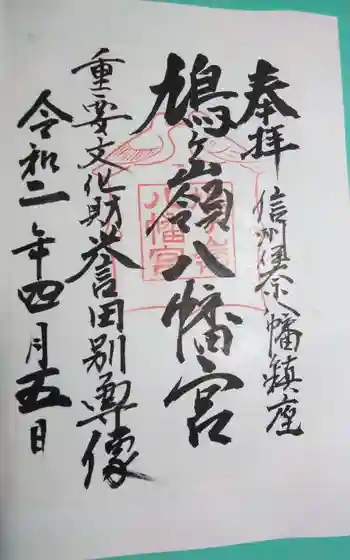 奉拝
信州伊奈八幡鎮座
鳩ヶ嶺八幡宮
重要文化財誉田別尊像
令和二年四月五日